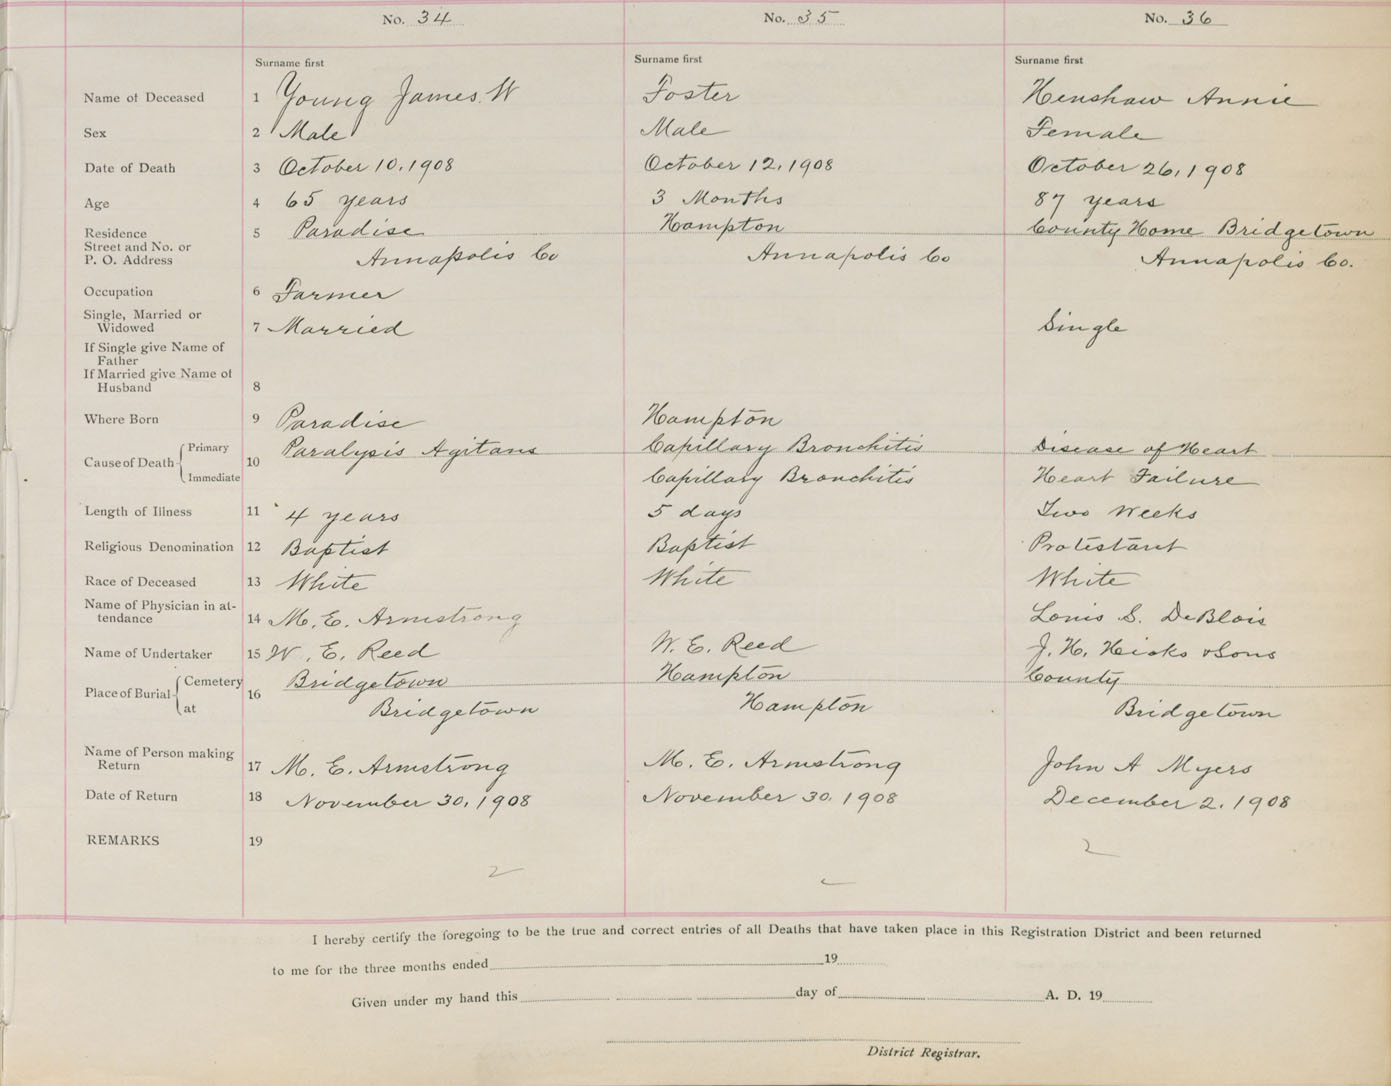 No. 34 No. 35 No. 36
Surname first Surname first Surname first
Name of Deceased 1 Young James W Foster Henshaw Annie
Sex 2 Male Male Female
Date of Death 3 October 10, 1908 October 12, 1908 October 26, 1908
Age 4 65 years 3 Months 87 years
Residence 5 Paradise Hampton County Home Bridgetown
Street and No. or
P. O. Address Annapolis Co Annapolis Co Annapolis Co.
Occupation 6 Farmer
Single, Married or
Widowed 7 Married Single
If Single give Name of
Father
If Married give Name of
Husband 8
Where Born 9 Paradise Hampton
Cause of Death Primary 10 Paralysis Agitans Capillary Bronchitis Disease of Heart
Immediate Capillary Bronchitis Heart Failure
Length of Illness 11 4 years 5 days Two Weeks
Religious Denomination 12 Baptist Baptist Protestant
Race of Deceased 13 White White White
Name of Physician in at-
tendance 14 M. E. Armstrong Louis S. DeBlois
Name of Undertaker 15 W. E. Reed W. E. Reed J. H. Hicks & Sons
Place of Burial Cemetery 16 Bridgetown Hampton County
at Bridgetown Hampton Bridgetown
Name of Person making
Return 17 M. E. Armstrong M. E. Armstrong John A Myers
Date of Return 18 November 30, 1908 November 30, 1908 December 2, 1908
REMARKS 19
2 2
I hereby certify the foregoing to be the true and correct entries of all Deaths that have taken place in this Registration District and been returned
to me for the three months ended 19
Given under my hand this day of A. D. 19
District Registrar.